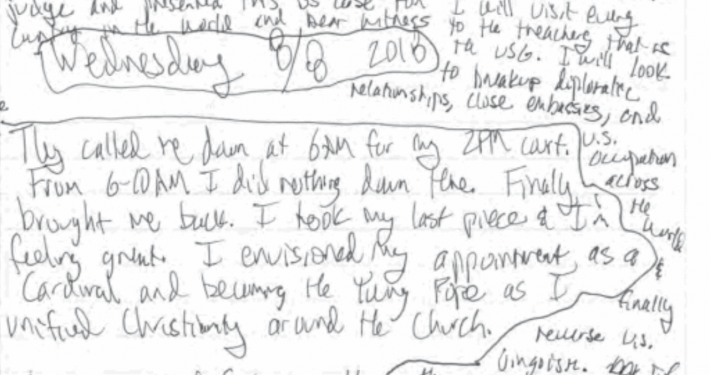 judge and presented this as case for
in the world and bear witness
Wednesday 8/8 2018
I will visit every
to the treachery that is
the USG. I will look
to breakup diplomatic
relationships, close embassies, end
U.S.
occupation
across
the
world
&
finally
reverse U.S.
They called me down at 6AM for my 2PM court.
From 6-10AM I did nothing down there. Finally,
brought me back. I took my last piece & I'm
feeling great. I envisioned my appointment as a
Cardinal and becoming the Young Pope as I
unified Christianity around the Church.